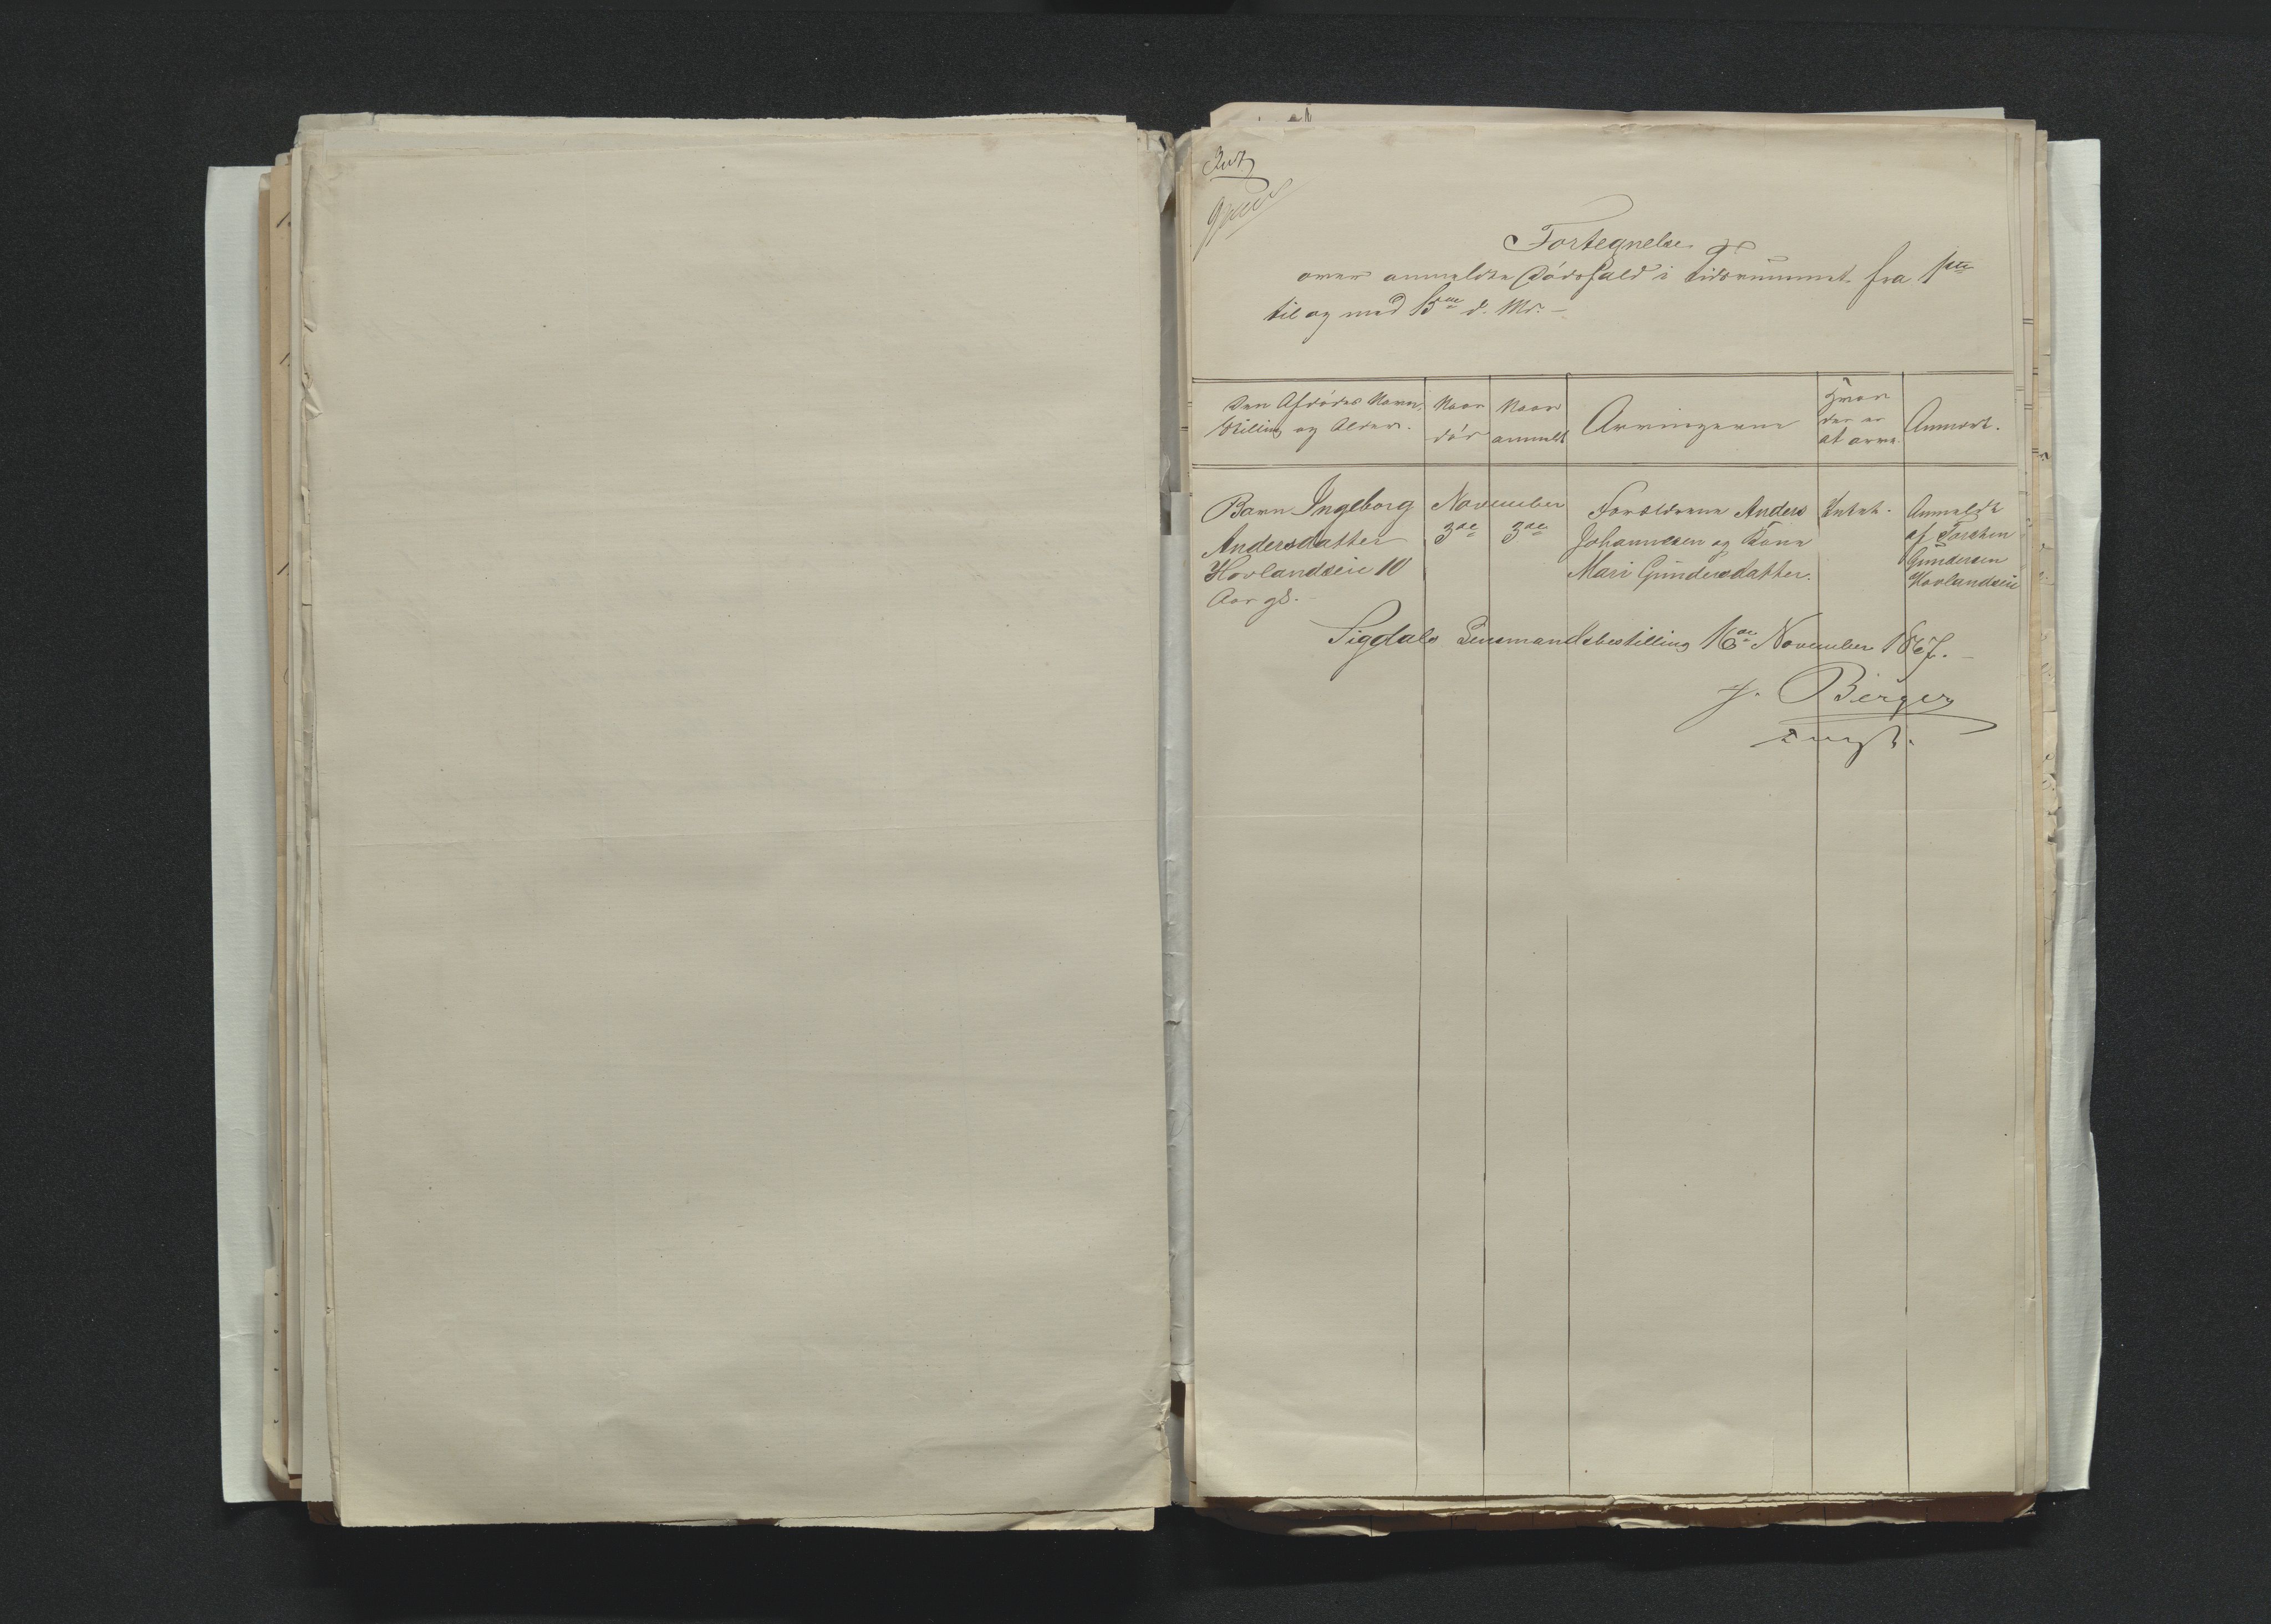 Fortegnelse
over anmeldte Dødsfald i tidsrummet fra 1ste
til og med 15de d. Md. –
Den Afdødes Navn,
Stilling og Alder.
Naar
død
Naar
anmeldt
Arvingerne
Hvor
der er
at arve.
Anmærk.
Barn Ingeborg
Andersdatter
Hovlandseie 10
Aar gl.
November
3de
3de
Forældrene Anders
Johannesen og Kone
Mari Gundersdatter.
Intet.
Anmeldt
af Torsten
Gundersen
Hovlandseie
Sigdals Lensmandsbestilling 16de November 1867. –
J. Berger